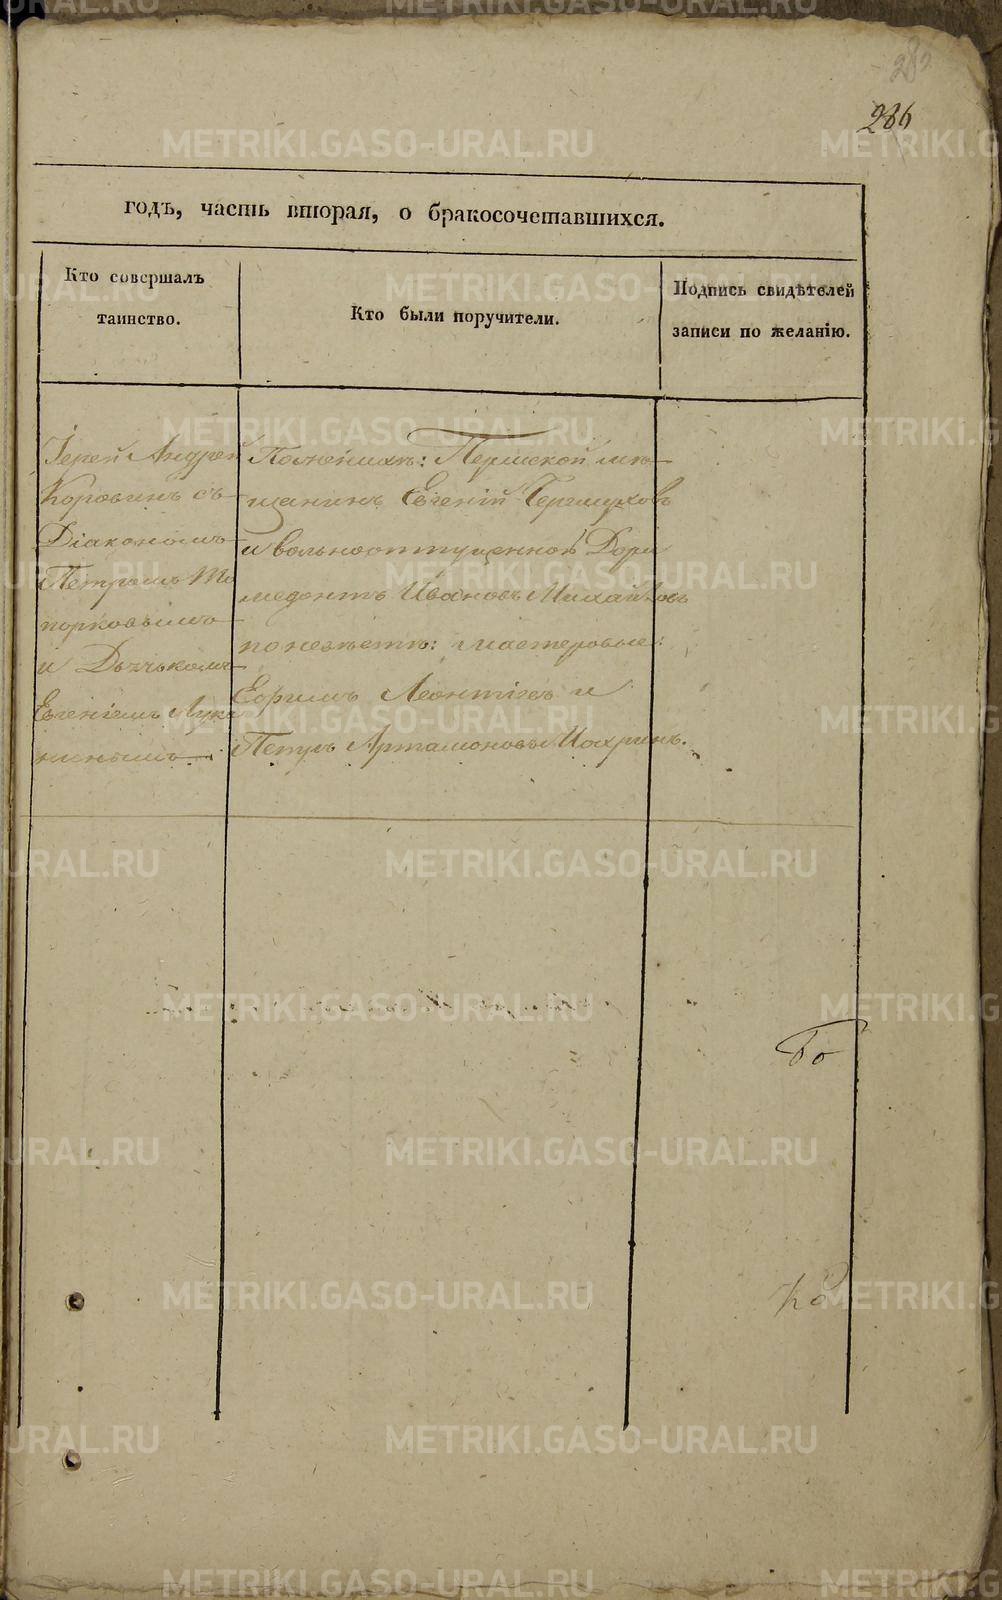 286
годъ, часть вторая, о бракосочетавшихся.
Кто совершалъ
таинство.
Кто были поручители.
Подпись свидѣтелей
записи по желанію.
Іерей Андрей
Коровинъ съ
Діакономъ
Петромъ То
порковымъ
и Дьячькомъ
Евгеніемъ Лука
нинымъ
По женихѣ: Пермской мѣ
щанинъ Евгеній
и вольноотпущенной Дори
медонтъ Ивановъ Михайловъ
по невѣстѣ: мастеровые:
Ефимъ Леонтіевъ и
Петръ Артамоновы Мохрины.
METRIKI.GASO-URAL.RU